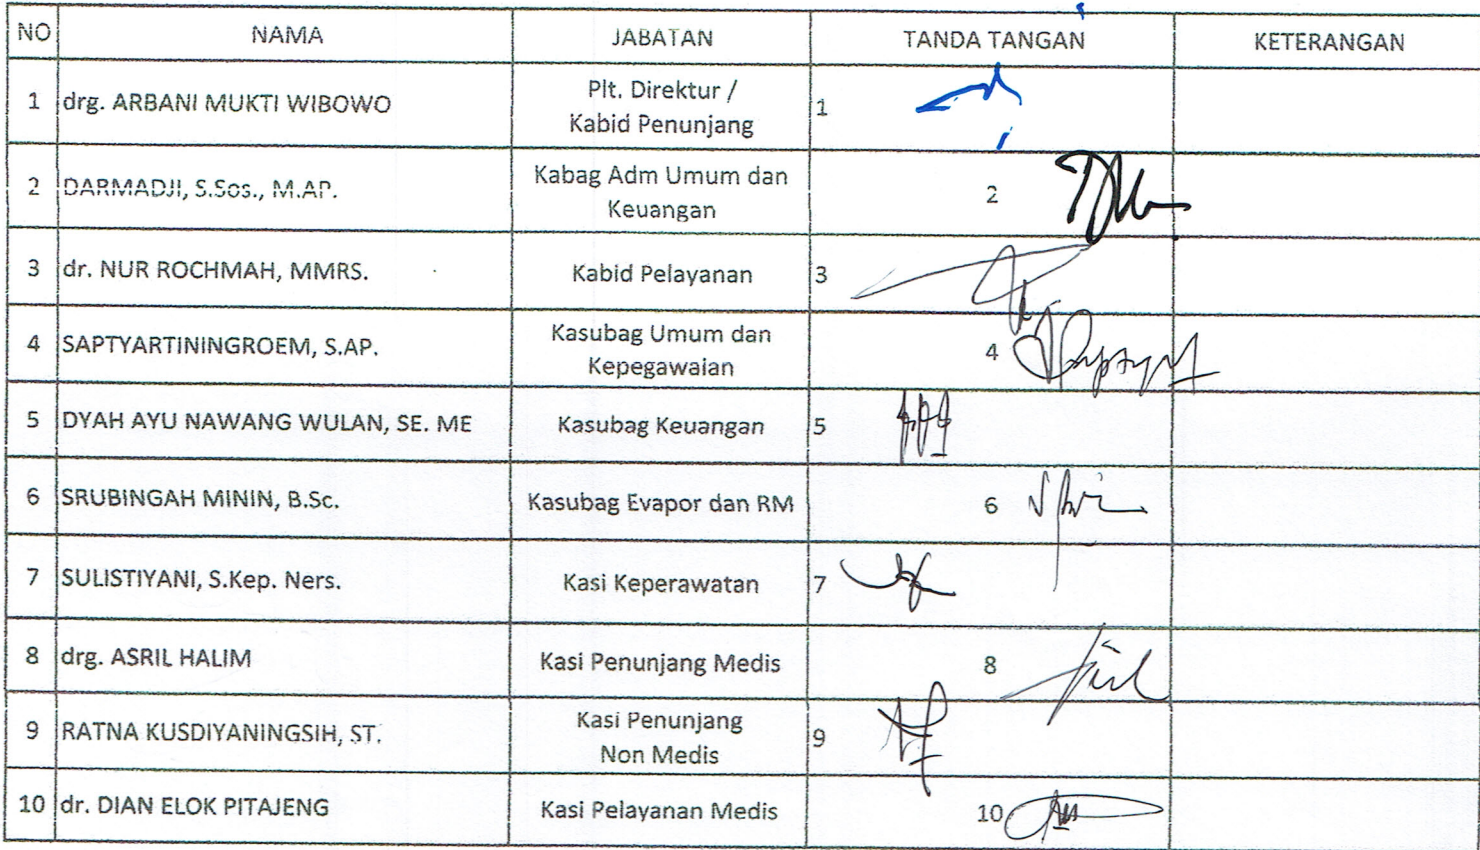 NO NAMA JABATAN TANDA TANGAN KETERANGAN
1 drg. ARBANI MUKTI WIBOWO Plt. Direktur / 1
Kabid Penunjang
2 DARMADJI, S.Sos., M.AP. Kabag Adm Umum dan 2
Keuangan
3 dr. NUR ROCHMAH, MMRS. Kabid Pelayanan 3
4 SAPTYARTININGROEM, S.AP. Kasubag Umum dan 4
Kepegawaian
5 DYAH AYU NAWANG WULAN, SE. ME Kasubag Keuangan 5
6 SRUBINGAH MININ, B.Sc. Kasubag Evapor dan RM 6
7 SULISTIYANI, S.Kep. Ners. Kasi Keperawatan 7
8 drg. ASRIL HALIM Kasi Penunjang Medis 8
9 RATNA KUSDIYANINGSIH, ST. Kasi Penunjang 9
Non Medis
10 dr. DIAN ELOK PITAJENG Kasi Pelayanan Medis 10